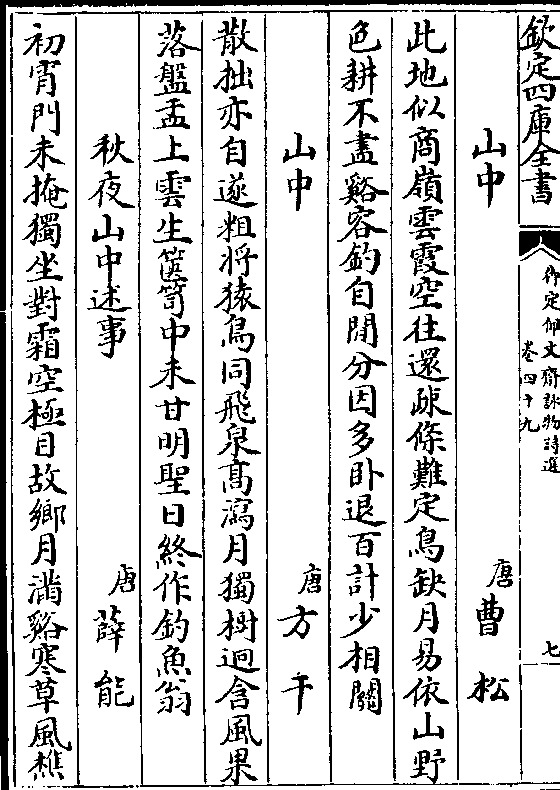 欽定四庫全書
御定佩文齋詠物詩選
卷四十九
七
山中 唐 曹松
此地似商嶺雲霞空往還疎條難定鳥缺月易依山野
色耕不盡谿容釣自閒分因多卧退百計少相關
山中 唐 方干
散拙亦自遂粗將猿鳥同飛泉高瀉月獨樹迥含風果
落盤盂上雲生篋笥中未甘明聖日終作釣魚翁
秋夜山中述事 唐 薛能
初宵門未掩獨坐對霜空極目故鄉月滿谿寒草風樵